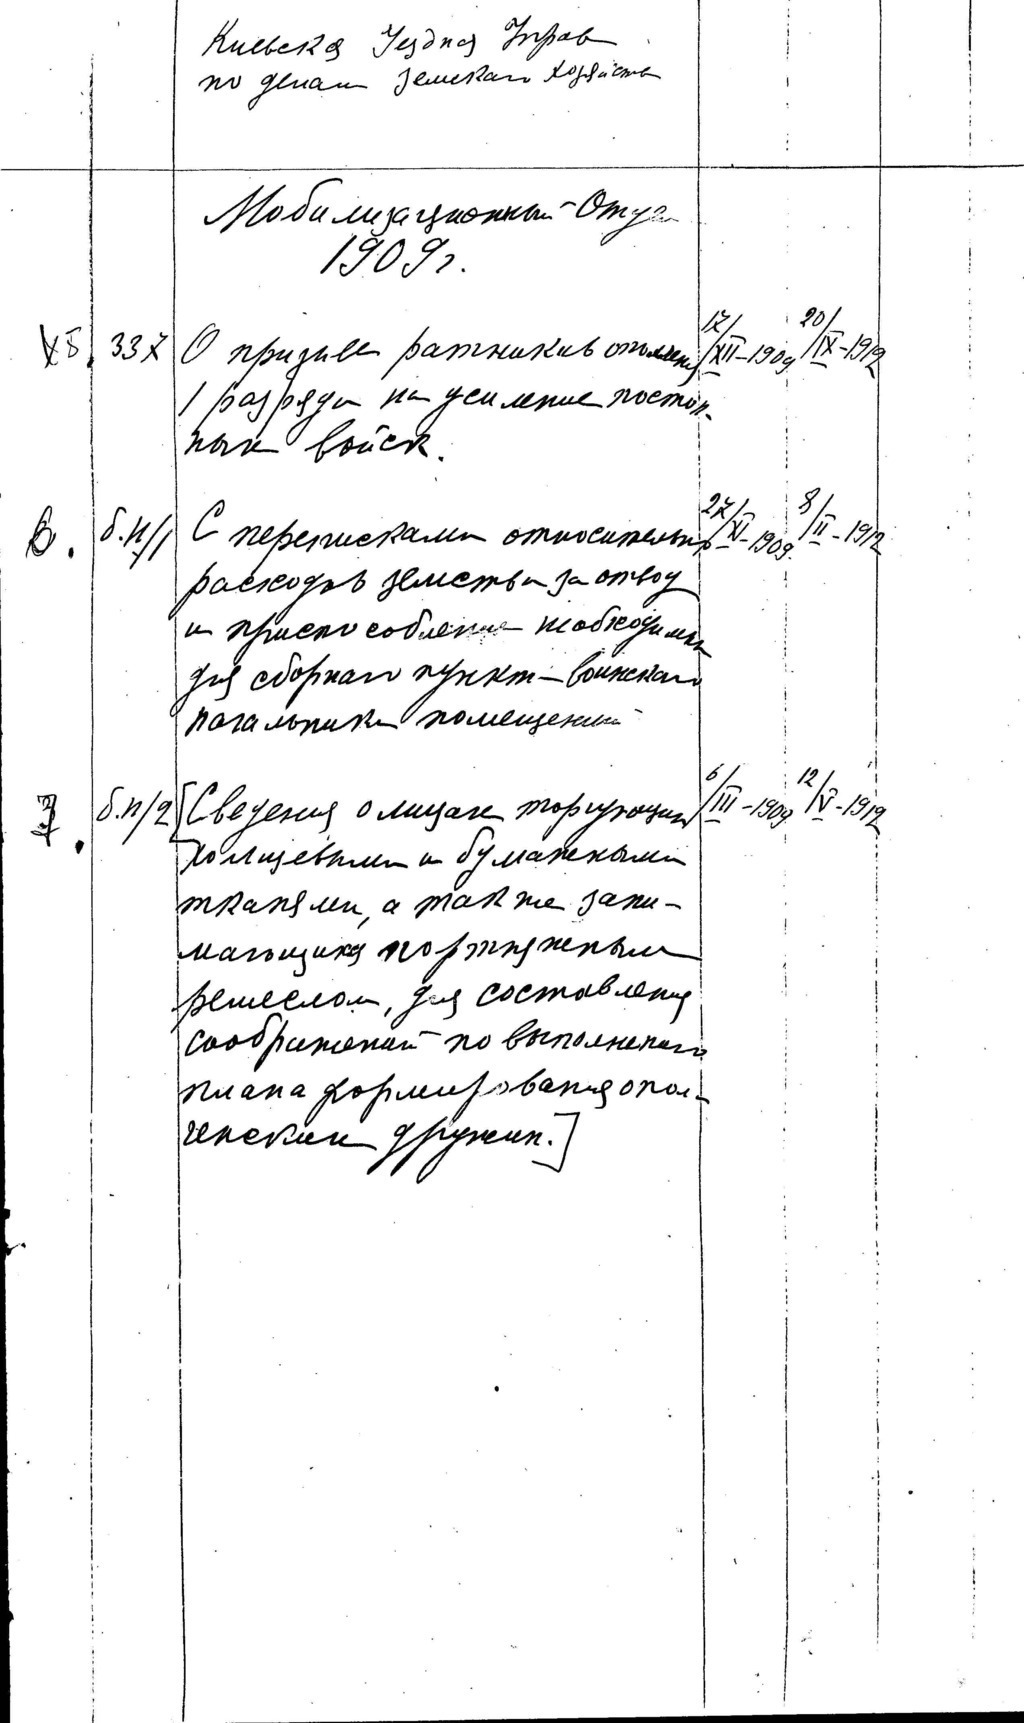 Киевская Уездная Управ
по делам земскаго хозяйства
Мобилизационный Отдел
1909 г.
5. 337 О призыве ратников ополчения 17/XII-1909 20/IX-1912
1 разряда на усиление постоян-
ных войск.
6. б.н/1 С переписками относительно 27/XI-1909. 8/II-1912
расходов земства за отвод
и приспособление необходимых
для сборнаго пункта воинскаго
начальника помещений
7. б.н/2 [Сведения о лицах торгующих 6/III-1909 12/V-1912
холщевыми и бумажными
тканями, а также зани-
мающихся портняжным
ремеслом, для составления
соображений по выполнению
плана формирования опол-
ченских дружин.]